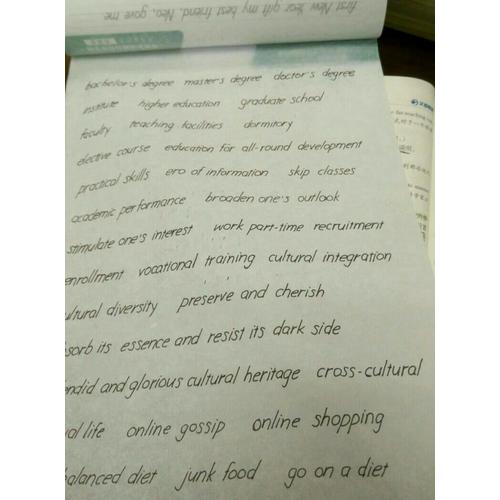 first New Year gift my best friend, Neo, gave me
bachelor's degree master's degree doctor's degree
institute higher education graduate school
faculty teaching facilities dormitory
elective course education for all-round development
practical skills ero of information skip classes
academic performance broaden one's outlook
stimulate one's interest work part-time recruitment
enrollment vocational training cultural integration
ultural diversity preserve and cherish
sorb its essence and resist its dark side
endid and glorious cultural heritage cross-cultural
al life online gossip online shopping
balanced diet junk food go on a diet